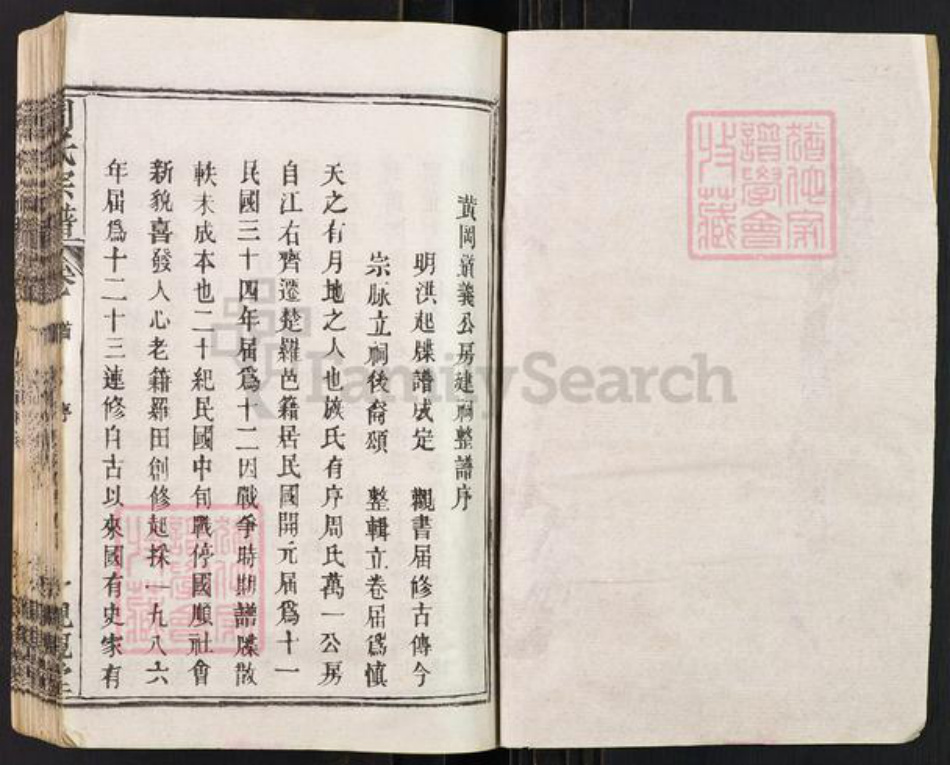 黄岡 義公房建祠整譜序
明洪起牒譜成定 觀書届修古傳今
宗脉立祠後裔頌 整輯立卷届爲慎
天之有月地之人也族氏有序周氏萬一公房
自江右齊遷楚羅邑籍居民國開元届爲十一
民國三十四年届爲十二因戰爭時期譜牒散
軼未成本也二十紀民國中旬戰停國順社會
新貌喜發人心老籍羅田創修起採一九八六
年届爲十二十三連修自古以來國有史家有
氏宗譜
卷
首
序
FamilySearch
譜學會
收藏